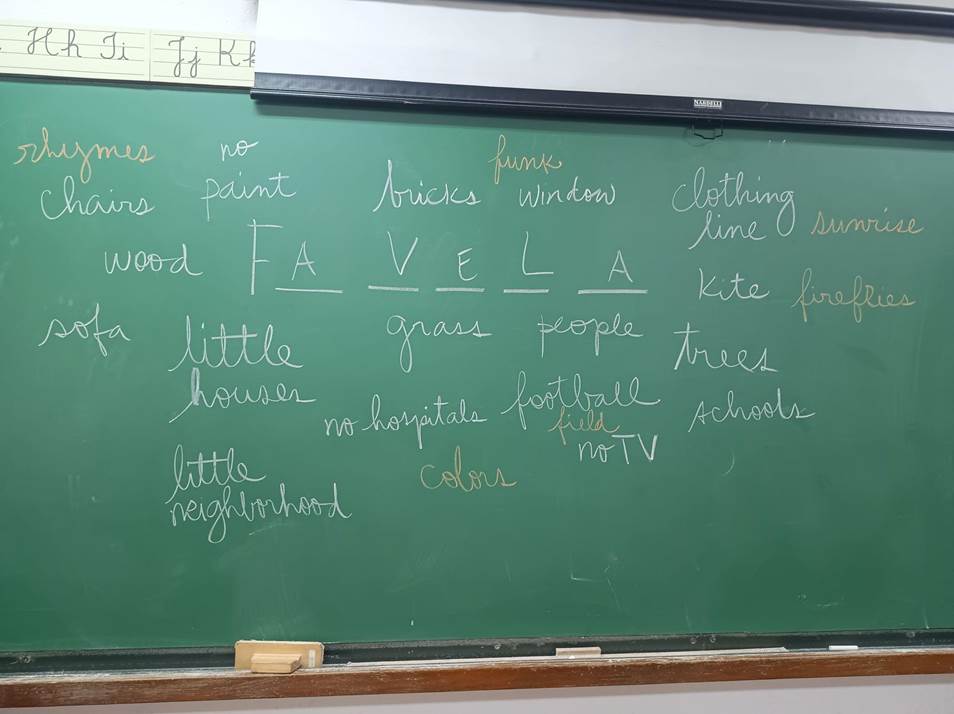 Hh Ii Jj Kk
NARDELLI
rhymes no funk
chairs paint bricks window clothing
line sunrise
wood FAVELA
kite fireflies
sofa little grass people trees
houses no hospitals football schools
field
no TV
little colors
neighborhood